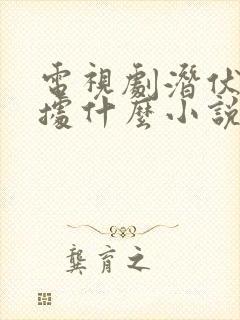 電視劇潛伏
據什麼小說
龔育之